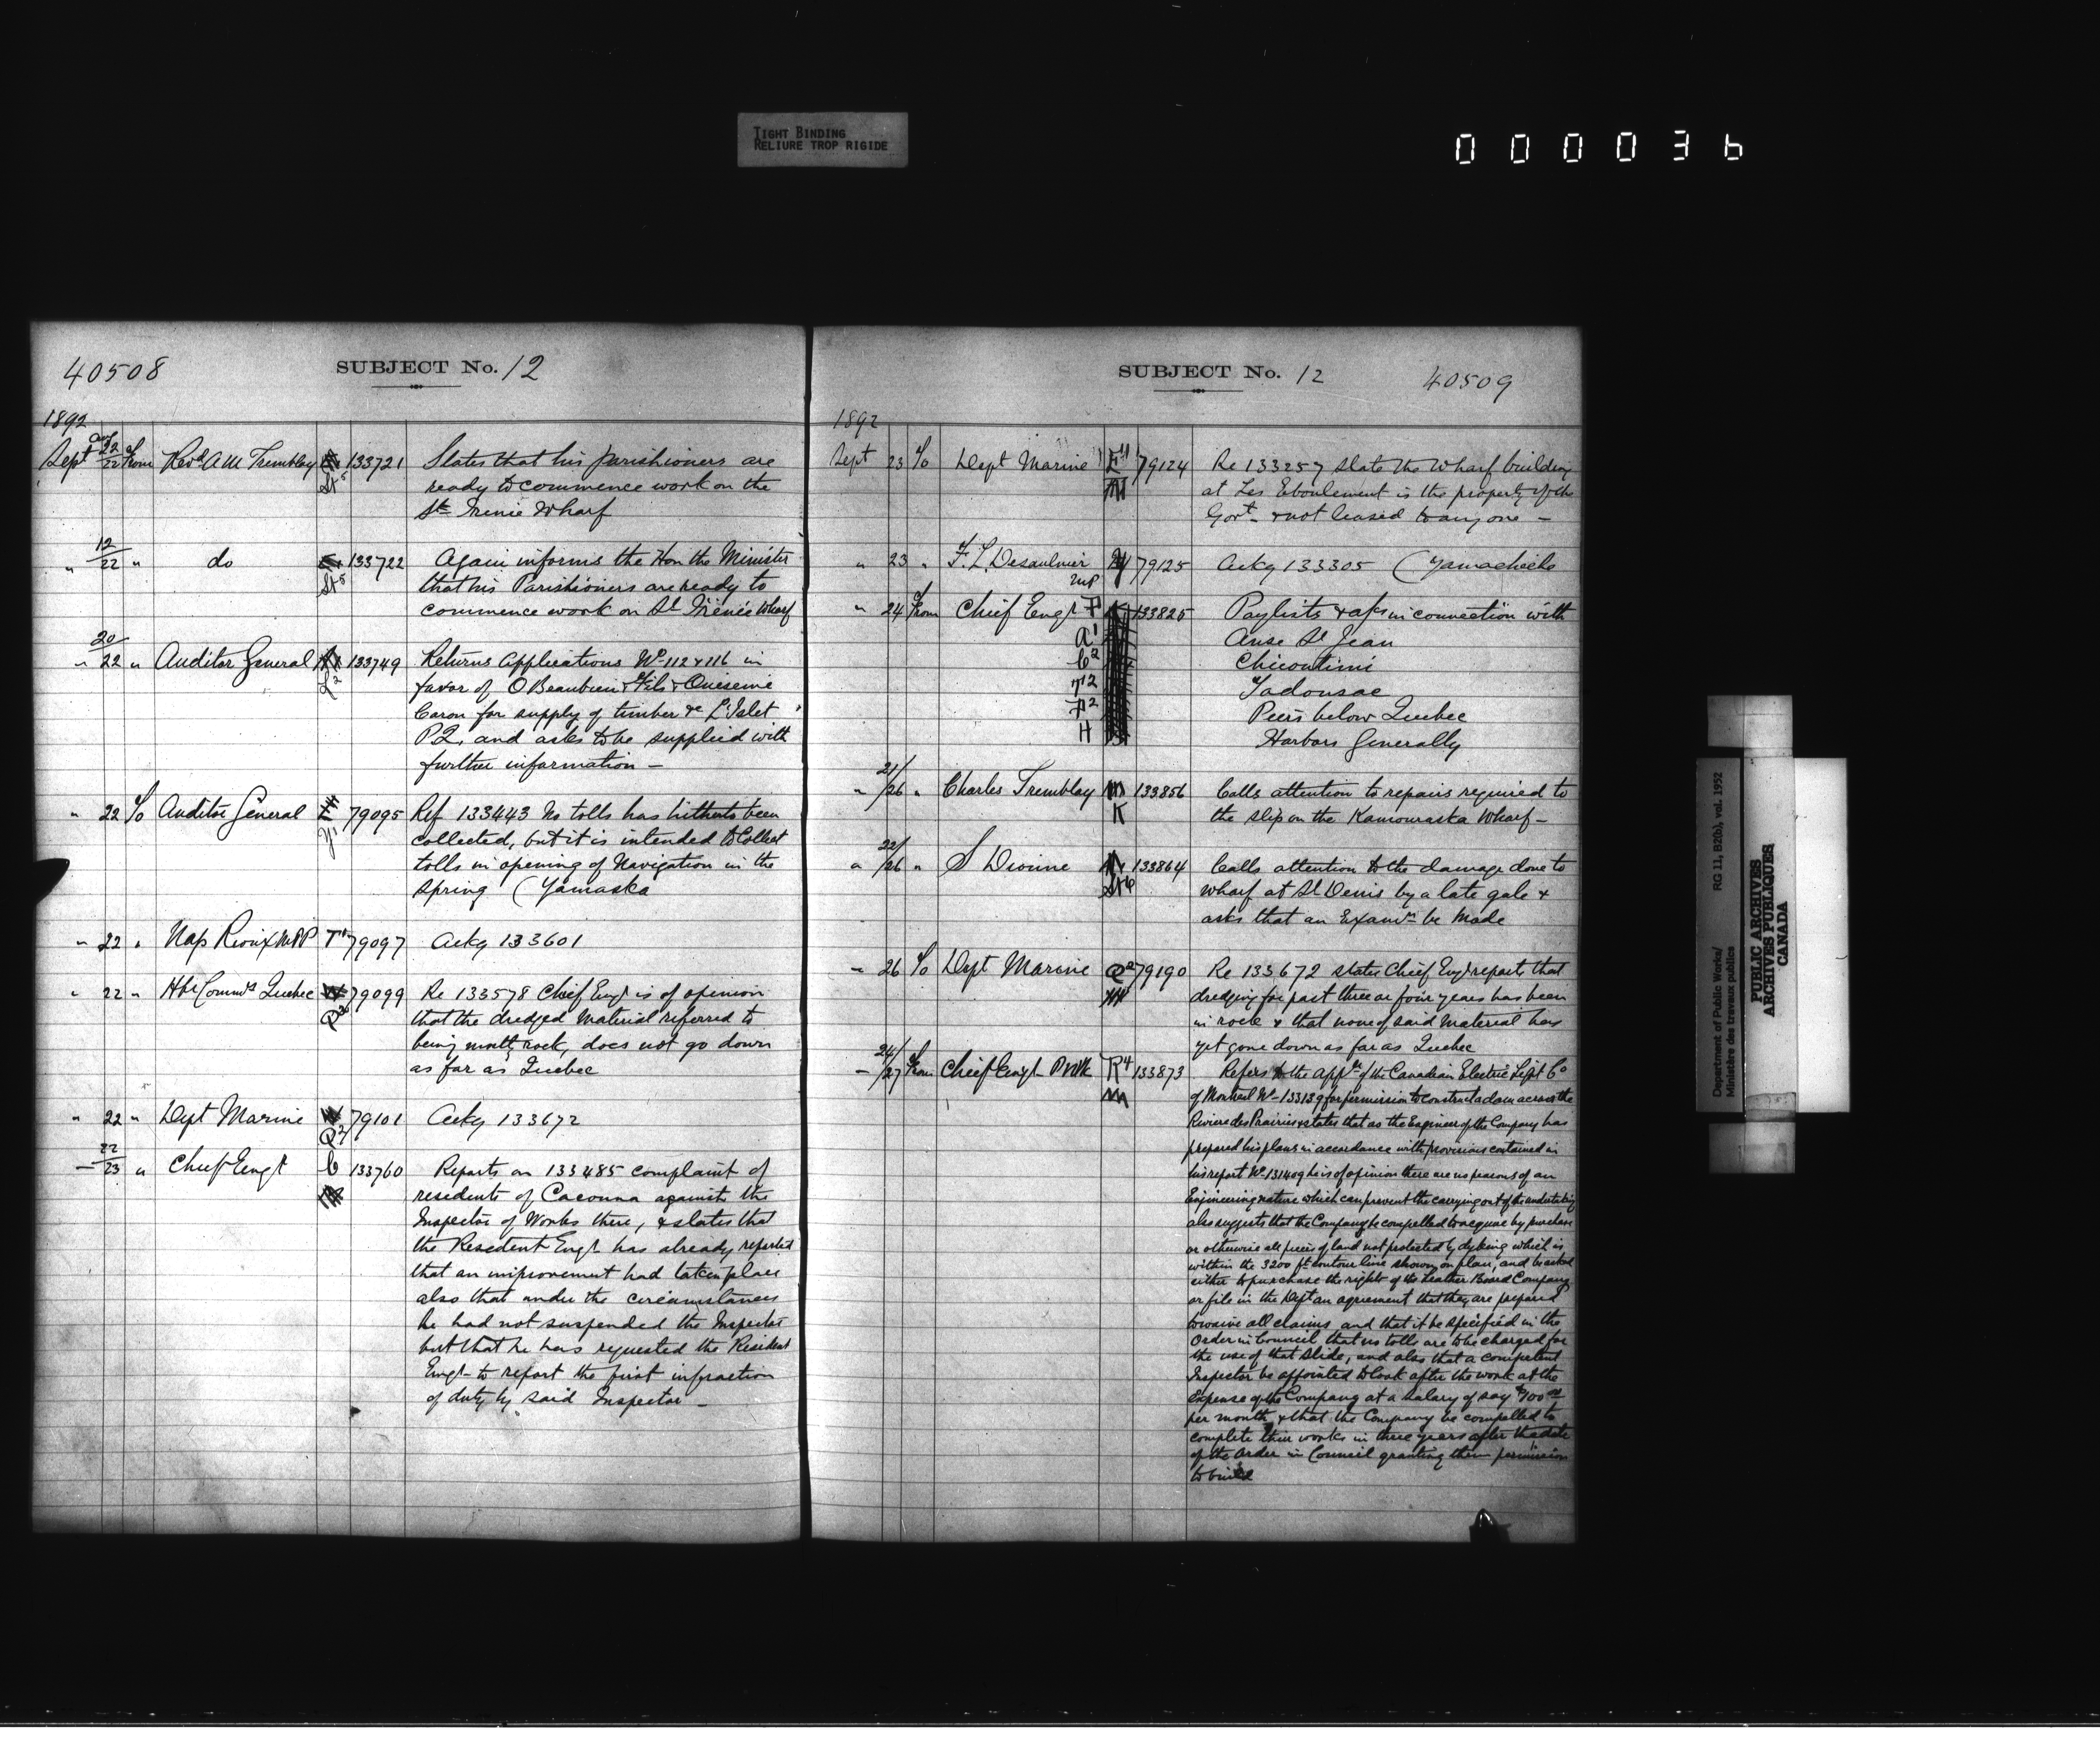 TIGHT BINDING
RELIURE TROP RIGIDE
000036
40508
SUBJECT No. 12
1892
Sept 22/22 From Revd A M Tremblay St5 133721 States that his parishioners are
ready to commence work on the
Ste Irenie Wharf
" 12/22 " do St5 133722 Again informs the Hon the Minister
that his Parishioners are ready to
commence work on St Irénée Wharf
" 20/22 " Auditor General L2 133749 Returns Applications No 112 & 116 in
favor of O Beaubien & Fils & Onesime
Caron for supply of timber &c L'Islet
P.Q. and asks to be supplied with
further information —
" 22 To Auditor General Y1 79095 Ref 133443 No tolls has hitherto been
collected, but it is intended to Collect
tolls in opening of Navigation in the
Spring (Yamaska
" 22 " Nap Rioux MPP T1 79097 Ackg 133601
" 22 " Hbr Commrs Quebec Q2 79099 Re 133578 Chief Engr is of opinion
that the dredged Material referred to
being mostly rock, does not go down
as far as Quebec
" 22 " Dept Marine Q2 79101 Ackg 133672
22/23 " Chief Engr C 133760 Reports on 133485 complaint of
residents of Cacouna against the
Inspector of Works there, & states that
the Resedent Engr has already reported
that an improvement had taken place
also that under the circumstances
he had not suspended the Inspector
but that he has requested the Resident
Engr to report the first infraction
of duty by said Inspector —
SUBJECT No. 12
40509
1892
Sept 23 To Dept Marine E11 79124 Re 133257 state the Wharf building
at Les Eboulement is the property of the
Govt & not leased to any one —
" 23 " F. L. Desaulnier MP Y 79125 Ackg 133305 (Yamachiche
" 24 From Chief Engr F 133825 Paylists & a/cs in connection with
A1 Anse St Jean
C2 Chicoutimi
T2 Tadousac
P2 Piers below Quebec
H Harbors Generally
" 21/26 " Charles Tremblay K 133856 Calls attention to repairs required to
the slip on the Kamouraska Wharf —
" 22/26 " S Dionne St6 133864 Calls attention to the damage done to
wharf at St Denis by a late gale &
asks that an Examn be Made
" 26 To Dept Marine Q2 79190 Re 133672 states Chief Engr reports that
dredging for past three or four years has been
in rock & that none of said Material has
yet gone down as far as Quebec
24/27 From Chief Engr PWk R4 133873 Refers to the appln of the Canadian Electric Light Co
of Montreal No 133139 for permission to construct a dam across the
Riviere des Prairies & states that as the Engineer of the Company has
prepared his plans in accordance with provisions contained in
his report No 131409 he is of opinion there are no reasons of an
Engineering nature which can prevent the carrying out of the undertaking
also suggests that the Company be compelled to acquire by purchase
or otherwise all pieces of land not protected by dyking which is
within the 3200 ft contour line shown on plan, and be asked
either to purchase the right of the Leather Board Company
or file in the Dept an agreement that they are prepared
to waive all claims and that it be specified in the
Order in Council that no tolls are to be charged for
the use of that slide, and also that a competent
Inspector be appointed to look after the work at the
expense of the Company at a salary of say $100.00
per month & that the Company be compelled to
complete their works in three years after the date
of the Order in Council granting them permission
to build
Department of Public Works/ RG 11, B20(b), vol. 1952
Ministère des travaux publics
PUBLIC ARCHIVES
ARCHIVES PUBLIQUES
CANADA